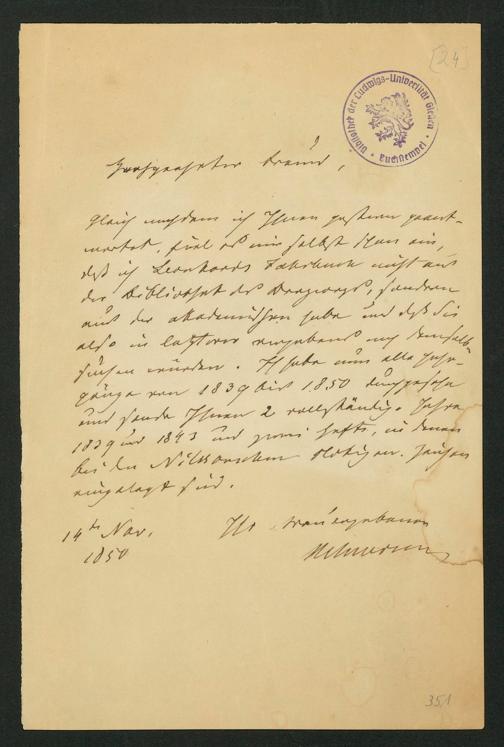 [24]
Bibliothek der Ludwigs-Universität Gießen
Buchstempel
Hochgeehrter Freund,
Gleich nachdem ich Ihnen gestern geant-
wortet, fiel es mir selbst schon ein,
daß ich Leonhards Jahrbuch nicht aus
der Bibliothek des Bergcorps, sondern
aus der akademischen habe und daß Sie
also in letzterer vergebens nach demselben
suchen würden. Ich habe nun alle Jahr-
gänge von 1839 bis 1850 durchgesehen
und sende Ihnen 2 vollständige Jahre
1839 und 1843 und zwei Hefte, in denen
bei den
eingelegt sind.
14ten Nov.
1850
Ihr treu ergebener
Helmersen
351